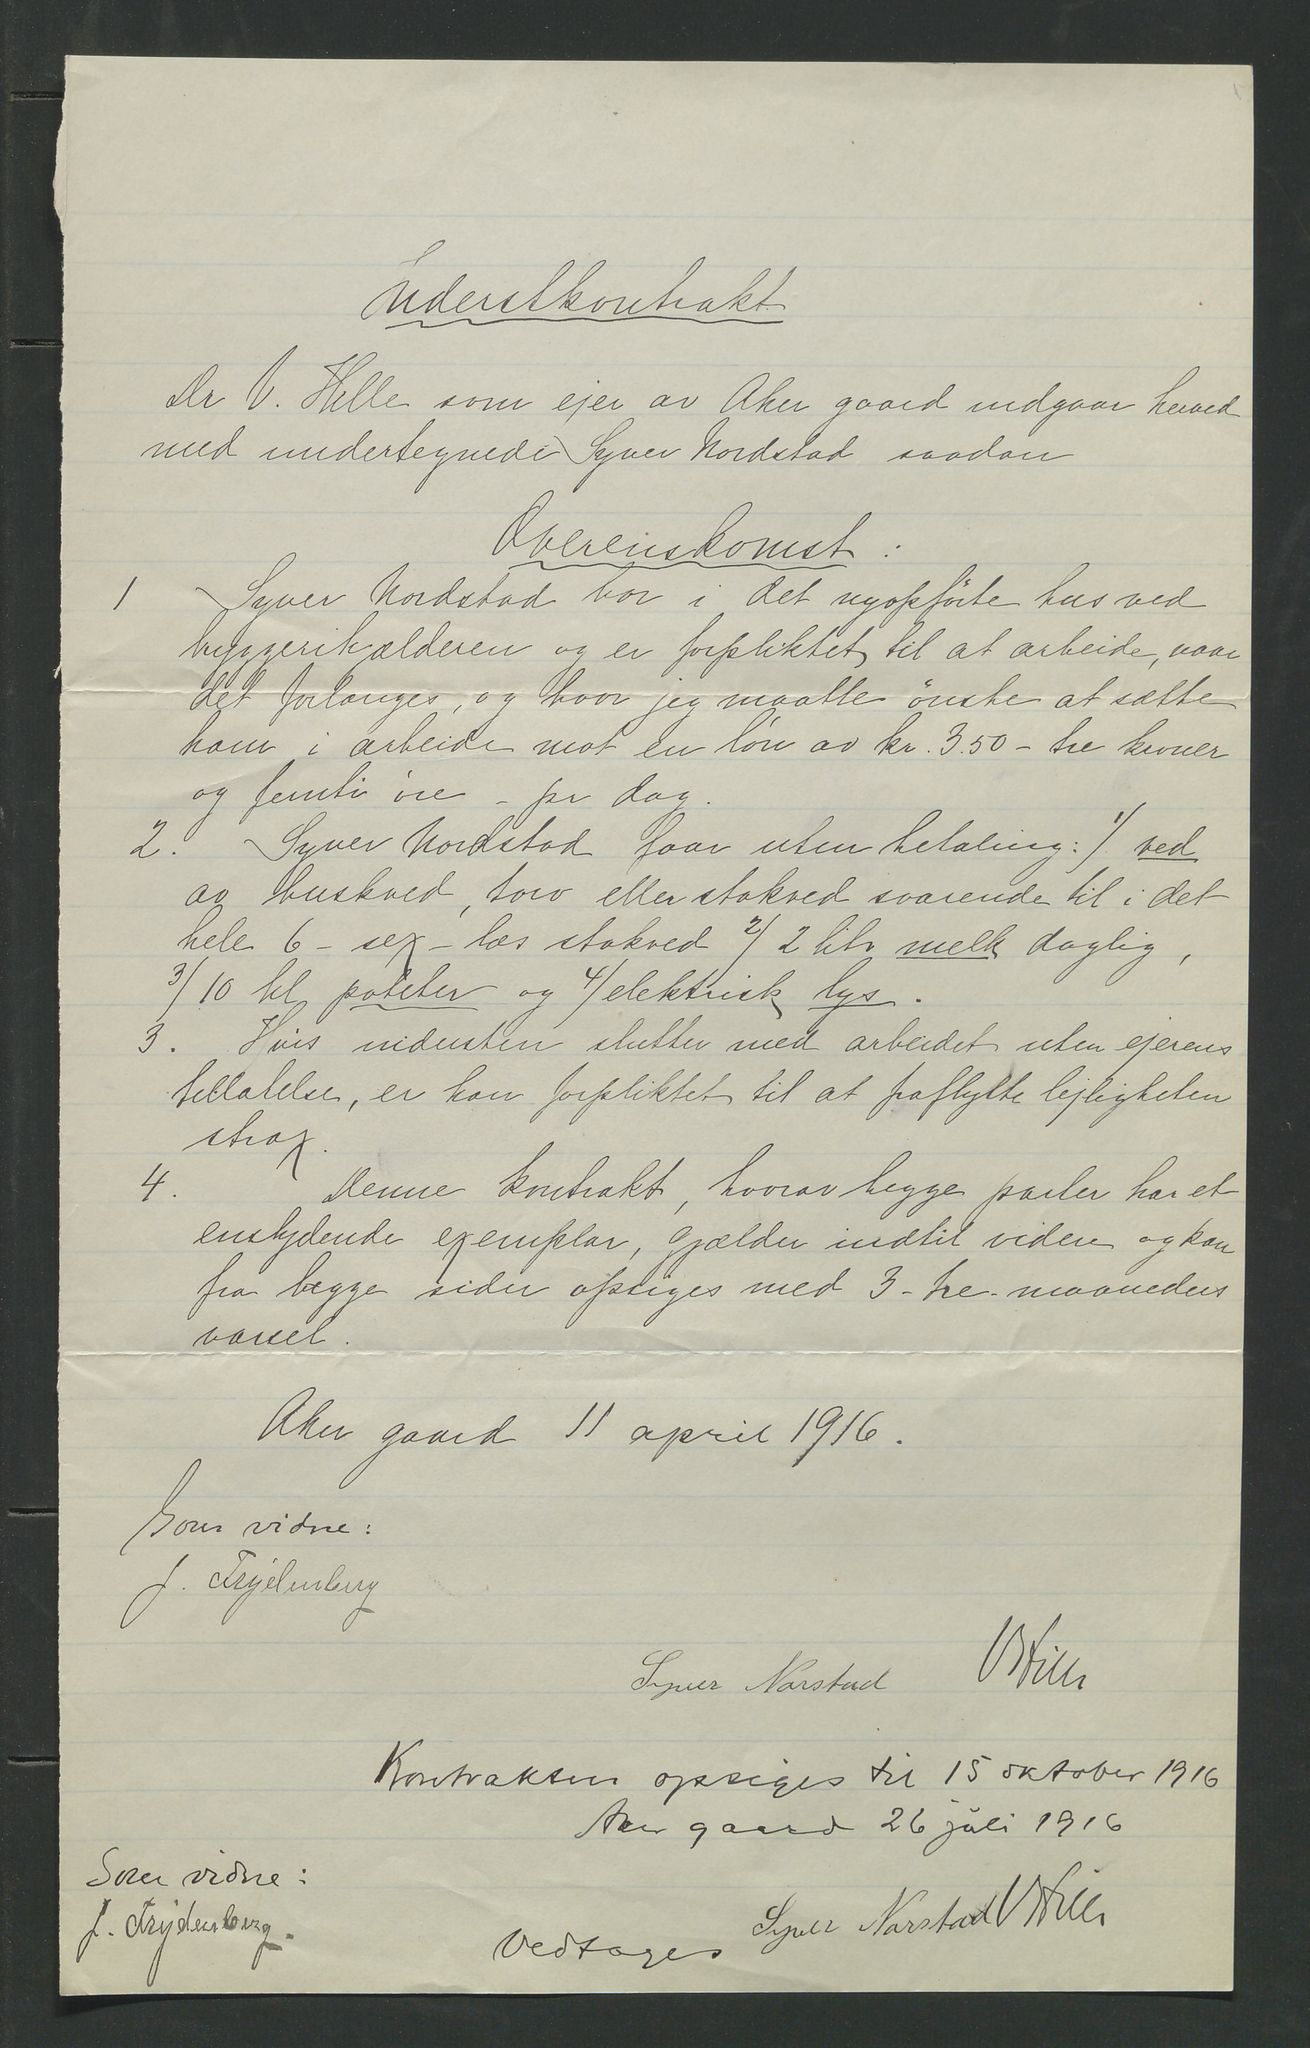 Inderstkontrakt
Dr V. Hille som ejer av Aker gaard indgaar herved
med undertegnede Syver Nordstad saadan
Overenskomst:
1 Syver Nordstad bor i det nyopførte hus ved
bryggerikjælderen og er forpliktet til at arbeide, naar
det forlanges, og hvor jeg maatte ønske at sætte
ham i arbeide mot en løn av kr. 3.50 - tre kroner
og femti øre - pr dag.
2. Syver Nordstad faar uten betaling: 1/ ved
av buskved, torv eller stakved svarende til i det
hele 6 - sex - læs stakved 2/ 2 litr melk daglig,
3/ 10 hl poteter og 4/ elektrisk lys.
3. Hvis indersten slutter med arbeidet uten ejerens
tillatelse, er han forpliktet til at fraflytte lejligheten
strax.
4. Denne kontrakt, hvorav begge parter har et
enslydende exemplar, gjælder indtil videre og kan
fra begge sider opsiges med 3 - tre - maaneders
varsel.
Aker gaard 11 april 1916.
Som vidne:
J. Frydenberg
Syver Narstad VHille
Kontrakten opsiges til 15 oktober 1916
Aker gaard 26 juli 1916
Som vidne:
J. Frydenberg.
Vedtages Syver Narstad VHille